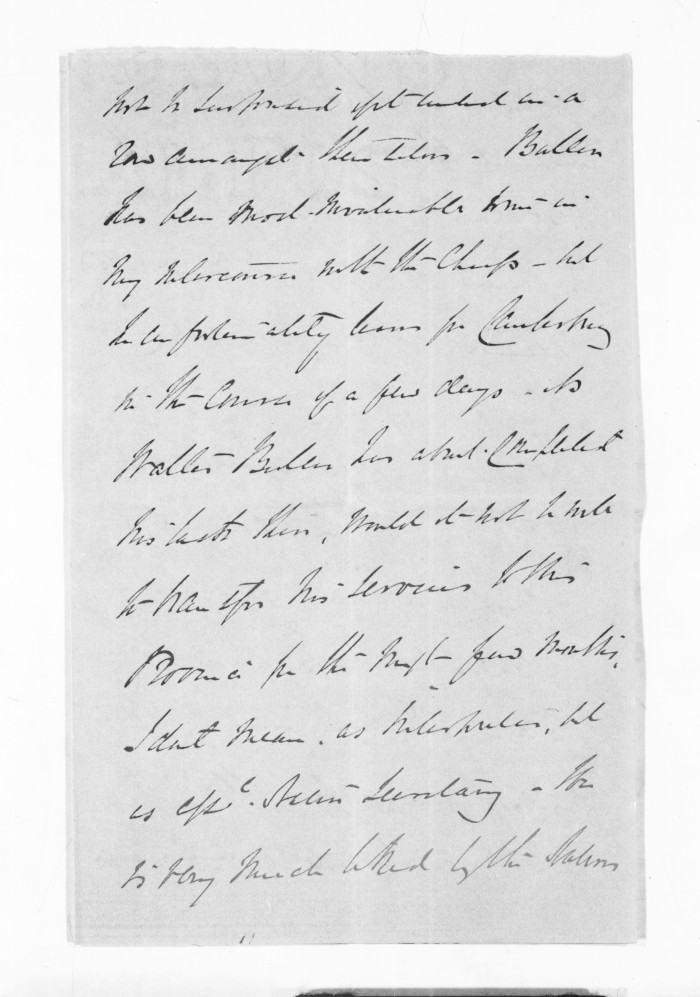 not be surprised if it ended in a
row amongst themselves - Buller
has been most invaluable to me in
my intercourse with the Chiefs - but
he unfortunately leaves for Canterbury
in the course of a few days - As
Walter Buller has about completed
his there, would it not be well
to transfer his services to this
Province for the next few months,
I don't mean, as Interpreter, but
as Native Secretary - He
is very much liked by the Natives